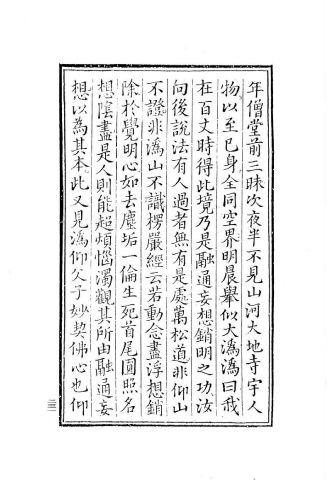 年僧堂前三昧次夜半不見山河大地寺宇人
物以至已身全同空界明晨舉似大溈溈曰我
在百丈時得此境乃是融通妄想銷明之功汝
向後說法有人過者無有是處萬松道非仰山
不證非溈山不識楞嚴經云若動念盡浮想銷
除於覺明心如去塵垢一倫生死首尾圓照名
想陰盡是人則能超煩惱濁觀其所由融通妄
想以為其本此又見溈仰父子妙契佛心也仰